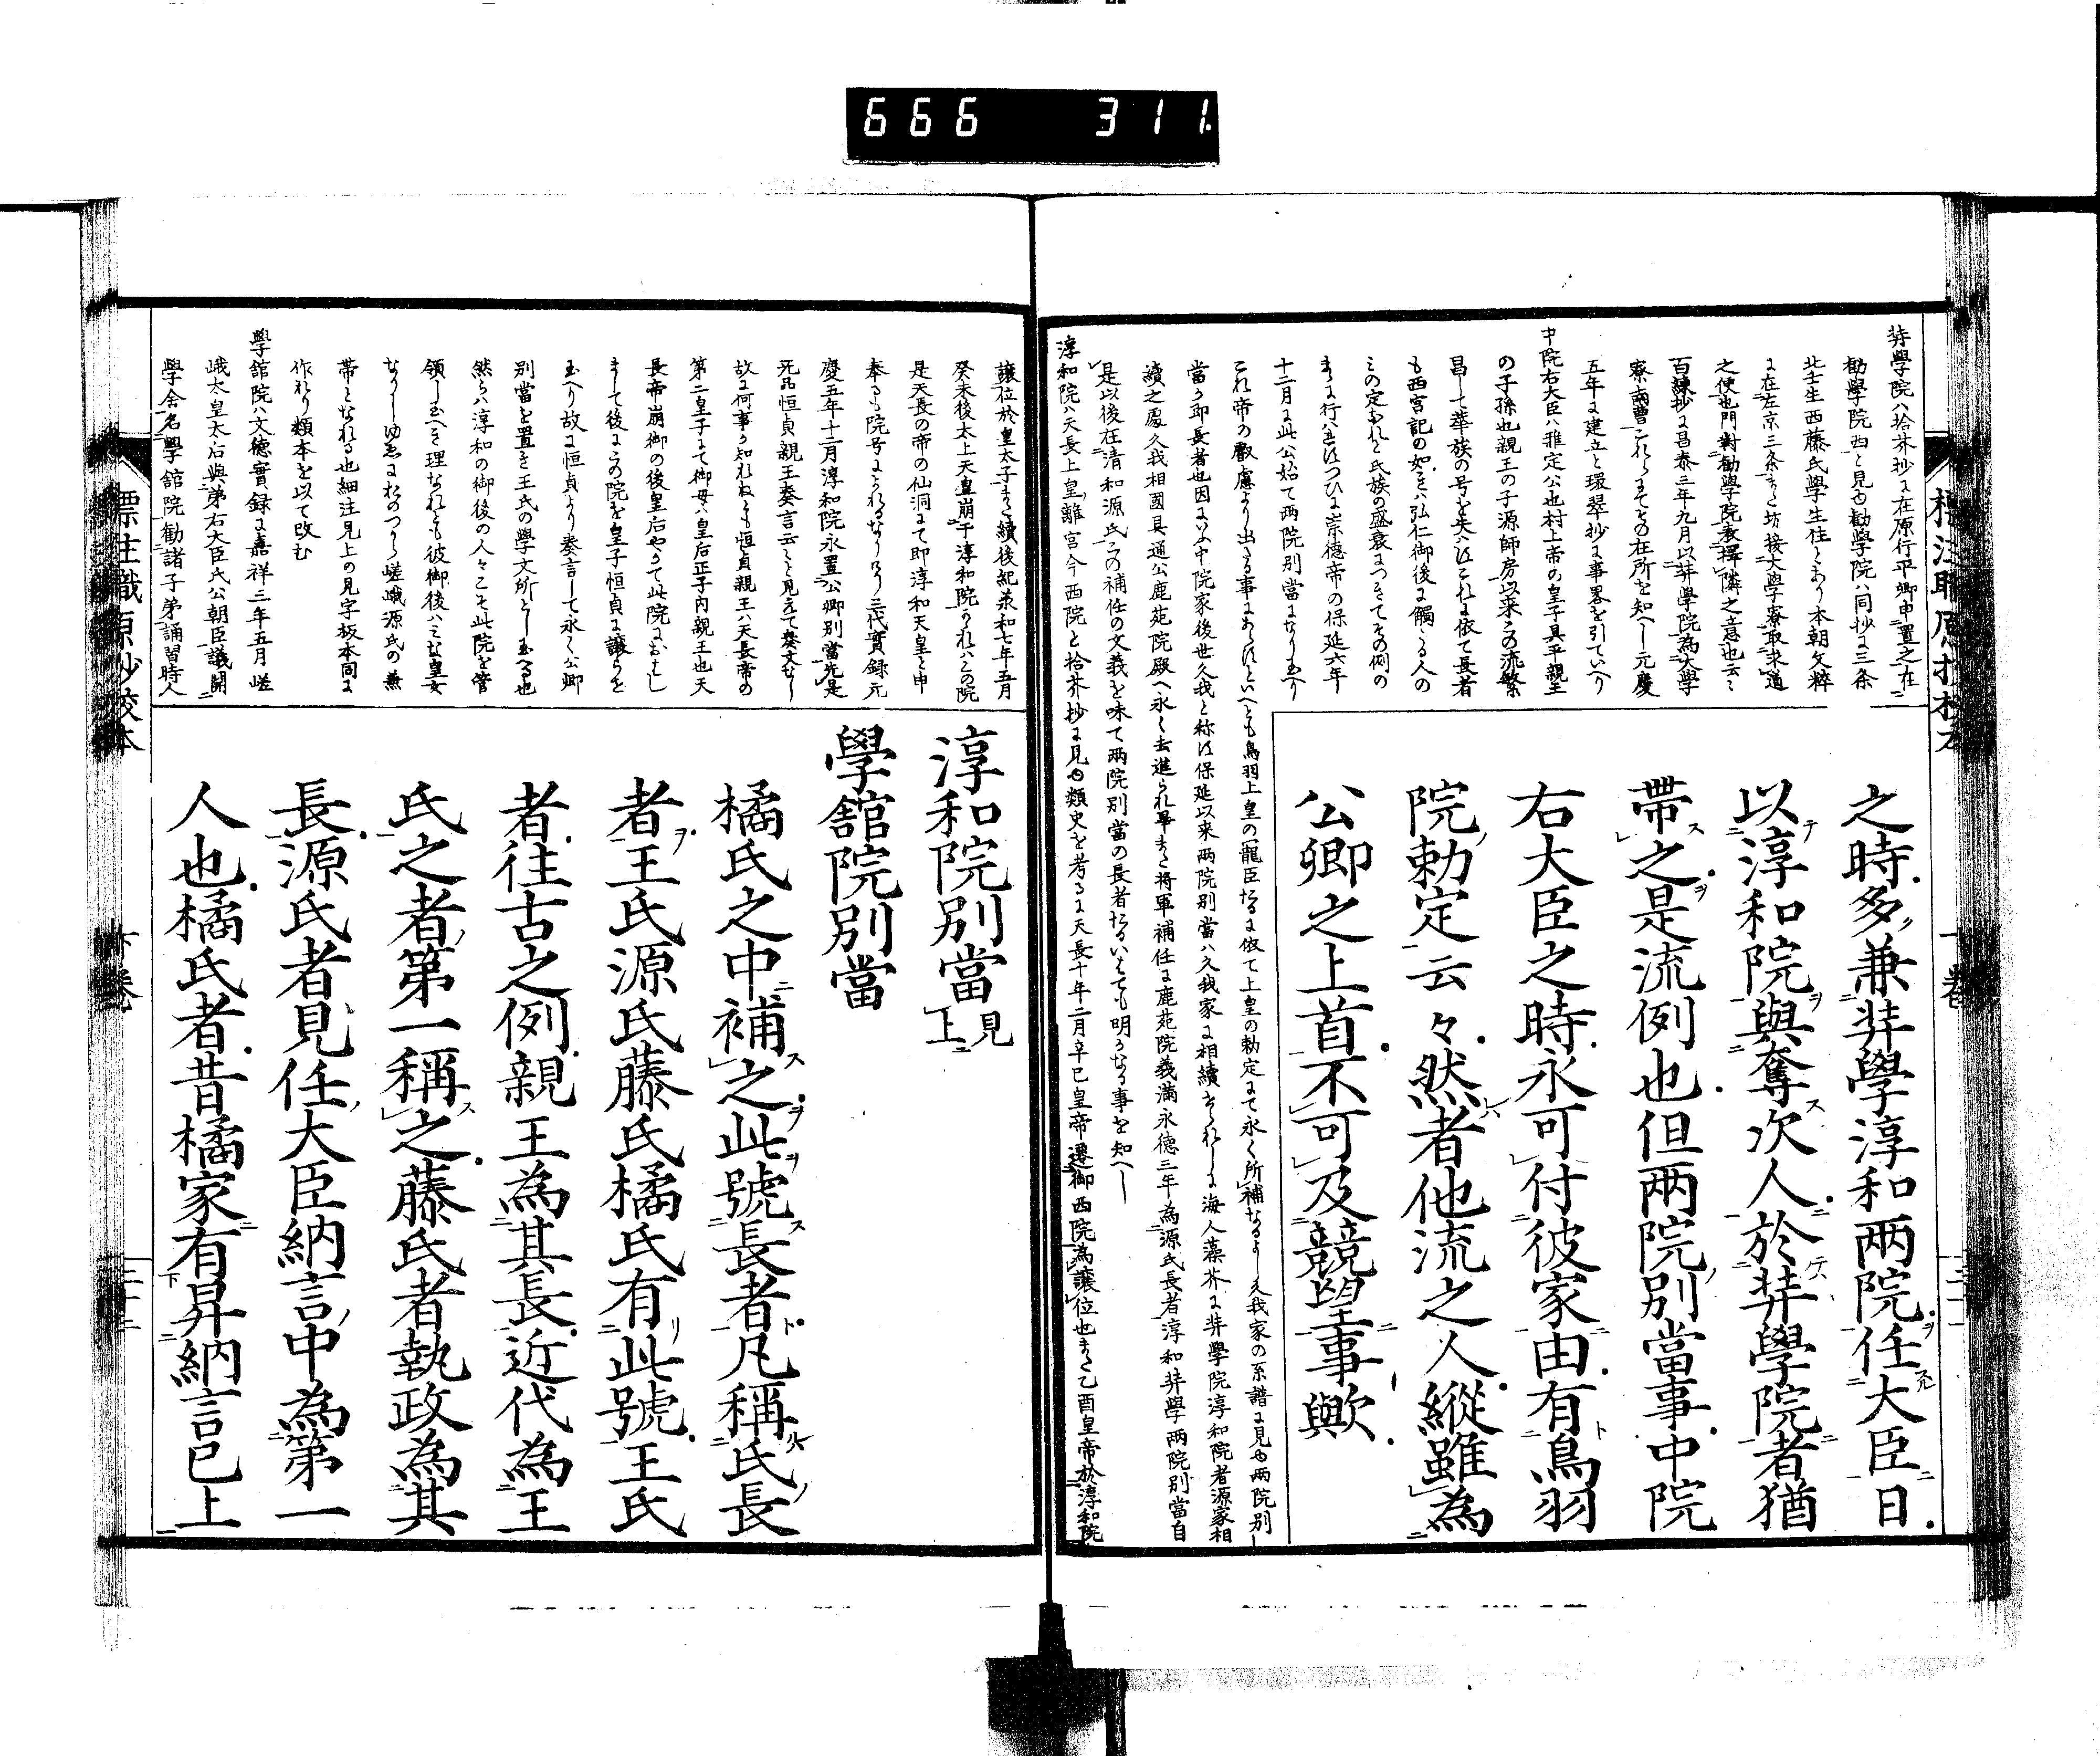 666 311
弉學院ハ拾芥抄に在原行平卿申置之在
勧學院西と見ゆ勧学院ハ同抄に三条
北壬生西藤氏學生住とあり本朝文粹
に在左京三条また坊接大學寮取求道
之便也門對勧學院教擇隣之意也云々
百錬抄に昌泰三年九月以弉學院為大學
寮南曹
五年に建立と環翠抄に事畧を引ていへり
中院右大臣ハ雅定公也村上帝の皇子具平親王
の子孫也親王の子源師房以来この流繁
昌して華族の号を
も西宮記の如きハ弘仁御後に觸るゝ人の
この定なれと氏族の盛衰につきてその例の
つひに崇徳帝の保延六年
十二月に此公始て両院別當になり玉へり
これ帝の叡慮より出たる事にあらすといへとも鳥羽上皇の寵臣なるに依て上皇の勅定にて永く所補なるよし久我家の系譜に見ゆ両院別
當
續之處久我相國具通公鹿苑院殿へ永く去進られ畢また将軍補任に鹿苑院義満永徳三年為源氏長者淳和弉學両院別當自
是以後在清和源氏この補任の文義を味て両院別當の長者たるいはても明らなる事を知へし
淳和院ハ天長上皇離宮今西院と拾芥抄に見ゆ類史を考るに天長十年二月辛巳皇帝遷御西院為讓位也また乙酉皇帝於淳和院
之時多兼弉學淳和両院任大臣日
以淳和院與奪次人於弉學院者猶
帶之是流例也但両院別當事中院
右大臣之時永可付彼家由有鳥羽
院勅定云々然者他流之人縱雖為
公卿之上首不可及競望事歟
讓位於皇太子また續後紀承和七年五月
癸未後太上天皇崩于淳和院
是天長の帝の仙洞にて即淳和天皇と申
奉るも院号によれるなり
慶五年十二月淳和院永置公卿別當先是
无品恒貞親王奏言云々と見えて奏文なし
故に何事か知れねとも恒貞親王ハ天長帝の
第二皇子にて御母ハ皇后正子内親王也天
長帝崩御の後皇后やかて此院におはし
まして後にこの院を皇子恒貞に讓らせ
玉へり故に恒貞より奏言して永く公卿
別當を置き王氏の學文所とし玉へる也
然らハ淳和の御後の人々こそ此院を管
領し玉へき理なれとも彼御後ハみな皇女
なりしゆゑにおのつから嵯峨源氏の兼
帶となれる也細注見上の見字板本同に
作れり類本を以て改む
學館院ハ文徳實録に嘉祥三年五月嵯
峨太皇太后與弟右大臣氏公朝臣議開
學舎名學館院勧諸子弟誦習時人
淳和院別當見上
學舘院別當
橘氏之中補之此號長者凡稱氏長
者王氏源氏藤氏橘氏有此號王氏
者往古之例親王為其長近代為王
氏之者第一稱之藤氏者執政為其
長源氏者見任大臣納言中為第一
人也橘氏者昔橘家有昇納言已上
標注職原抄校本
下巻